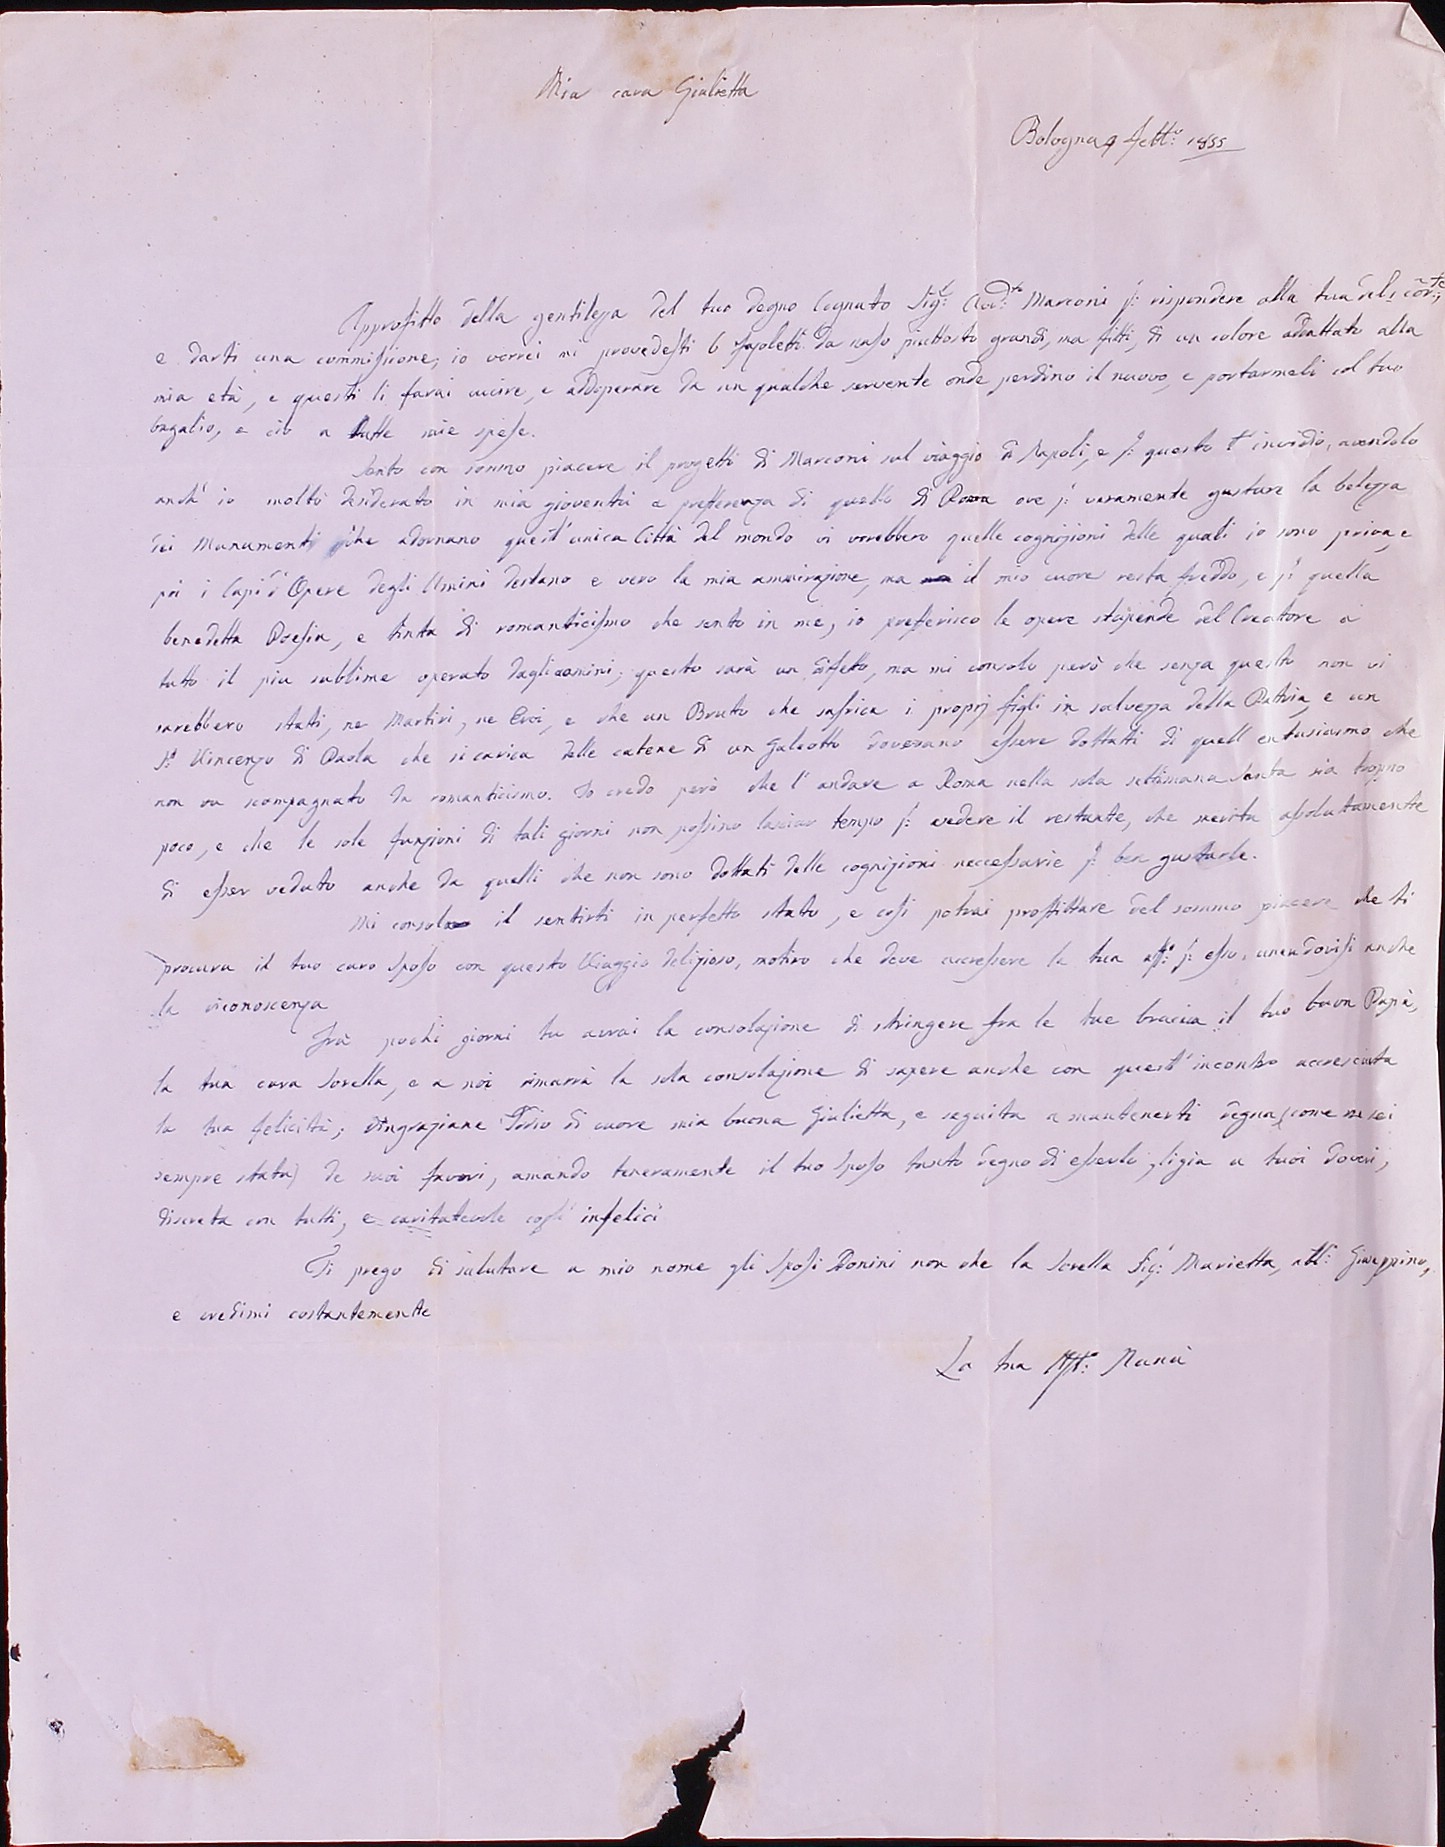 Mia cara Giulietta
Bologna 4 Febb:o 1855
Approfitto della gentileza del tuo degno Cognato Sig:r Marconi p: rispondere alla tua del cor:te,
e darti una commissione; io vorrei mi provedesti 6 fazoletti da naso piuttosto grandi, ma fitti, di un colore addattato alla
mia età, e questi li farai cucire, e addoperare da un qualche servente onde perdino il nuovo, e portarmeli col tuo
bagalio, e ciò a tutte mie spese.
Sento con sommo piacere il progetti di Marconi sul viaggio di Napoli, e p: questo t'invidio, avendolo
anch'io molto desiderato in mia gioventù a prefferenza di quello di Roma ove p: veramente gustare la beleza
dei Munumenti che adornano quest'unica Città del mondo vi vorebbero quelle cognizioni delle quali io sono priva, e
poi i Capi d'Opere degli Umini destano e vero la mia ammirazione, ma il mio cuore resta freddo, e p: quella
benedetta Poesia, e tinta di romanticismo che sento in me, io prefferisco le opere stupende del Creattore a
tutto il piu sublime operato dagli omini; questo sarà un difetto, ma mi consolo però che senza questo non vi
sarebbero stati, ne Martiri, ne Eroi, e che un Bruto che safrica i proprj figli in salvezza della Patria, e un
S: Vincenzo di Paola che si carica delle catene di un Galeotto dovevano essere dottatti di quell'entusiasmo che
non va scompagnato da romanticismo. Io credo però che l'andare a Roma nella sola settimana Santa sia troppo
poco, e che le sole funzioni di tali giorni non possino lasciar tempo p: vedere il restante, che merita assolutamente
di esser veduto anche da quelli che non sono dottati delle cognizioni neccessarie p: ben gustarle.
Mi consola il sentirti in perfetto stato, e così potrai profittare del sommo piacere che ti
procura il tuo caro Sposo con questo Viaggio delizioso, motivo che deve accressere la tua aff:e p: esso, unendovisi anche
la riconoscenza
Frà pochi giorni tu avrai la consolazione di stringere fra le tue braccia il tuo buon Papà,
la tua cara Sorella, e a noi rimarrà la sola consolazione di sapere anche con quest'incontro accresciuta
la tua felicità; Ringraziane Iddio di cuore mia buona Giulietta, e seguita a mantenerti degna (come ne sei
sempre stata) de suoi favori, amando teneramente il tuo Sposo tanto degno di esserlo, ligia a tuoi doveri,
discreta con tutti, e caritatevole cogl'infelici
Ti prego di salutare a mio nome gli Sposi Donini non che la Sorella Sig:a Marietta, Giuseppino,
e credimi costantemente
La tua Aff:a Nanà